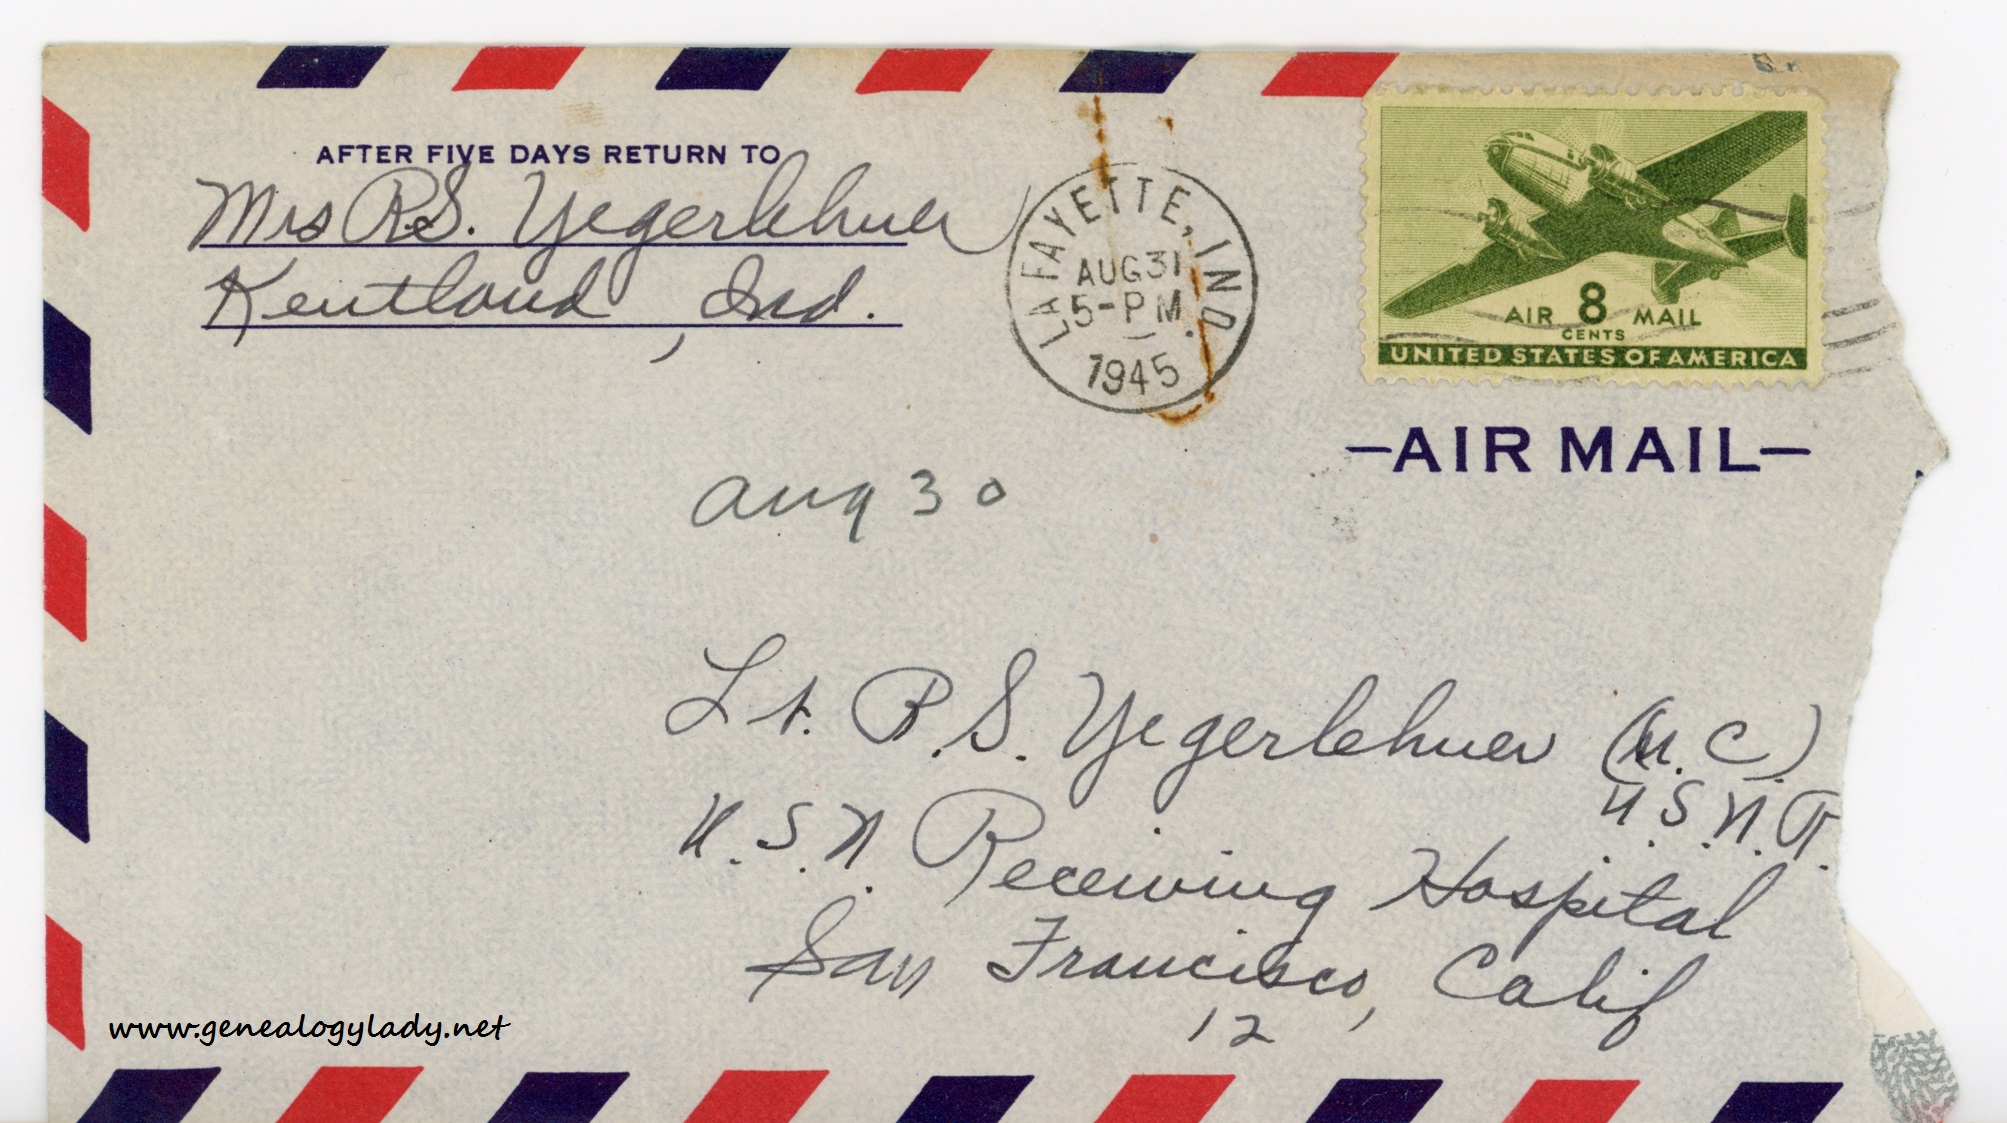 AFTER FIVE DAYS RETURN TO
Mrs R.S. Yegerlehner
Kentland, Ind.
LAFAYETTE, IND.
AUG 31
5-PM
1945
AIR 8 MAIL
CENTS
UNITED STATES OF AMERICA
-AIR MAIL-
Aug 30
Lt. R.S. Yegerlehner (M.C.)
U.S.N.R.
U.S.N. Receiving Hospital
San Francisco, Calif
12
www.genealogylady.net